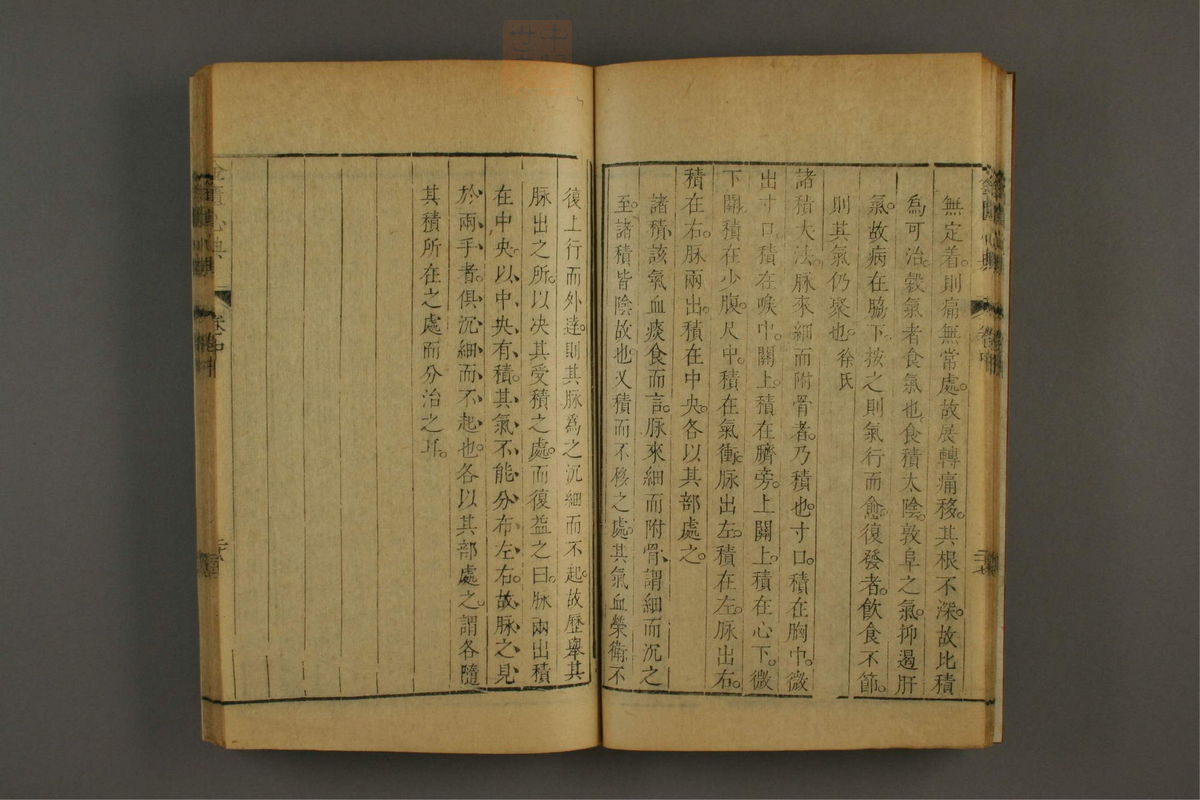 無定着。則痛無常處。故展轉痛移。其根不深。故比積
為可治。穀氣者食氣也。食積太陰。敦阜之氣。抑遏肝
氣。故病在脇下。按之則氣行而愈。復發者。飲食不節。
則其氣仍聚也。徐氏
諸積大法。脉來細而附骨者。乃積也。寸口。積在胸中。微
出寸口。積在喉中。關上。積在臍旁。上關上。積在心下。微
下關。積在少腹。尺中。積在氣衝。脉出左。積在左。脉出右。
積在右。脉兩出。積在中央。各以其部處之。
諸積。該氣血痰食而言。脉來細而附骨。謂細而沉之
至。諸積皆陰故也。又積而不移之處。其氣血榮衛不
復上行而外達。則其脉為之沉細而不起。故歷舉其
脉出之所。以决其受積之處。而復益之曰。脉兩出積
在中央。以中央有積。其氣不能分布左右。故脉之見
於兩手者。俱沉細而不起也。各以其部處之。謂各隨
其積所在之處而分治之耳。
心典
卷中